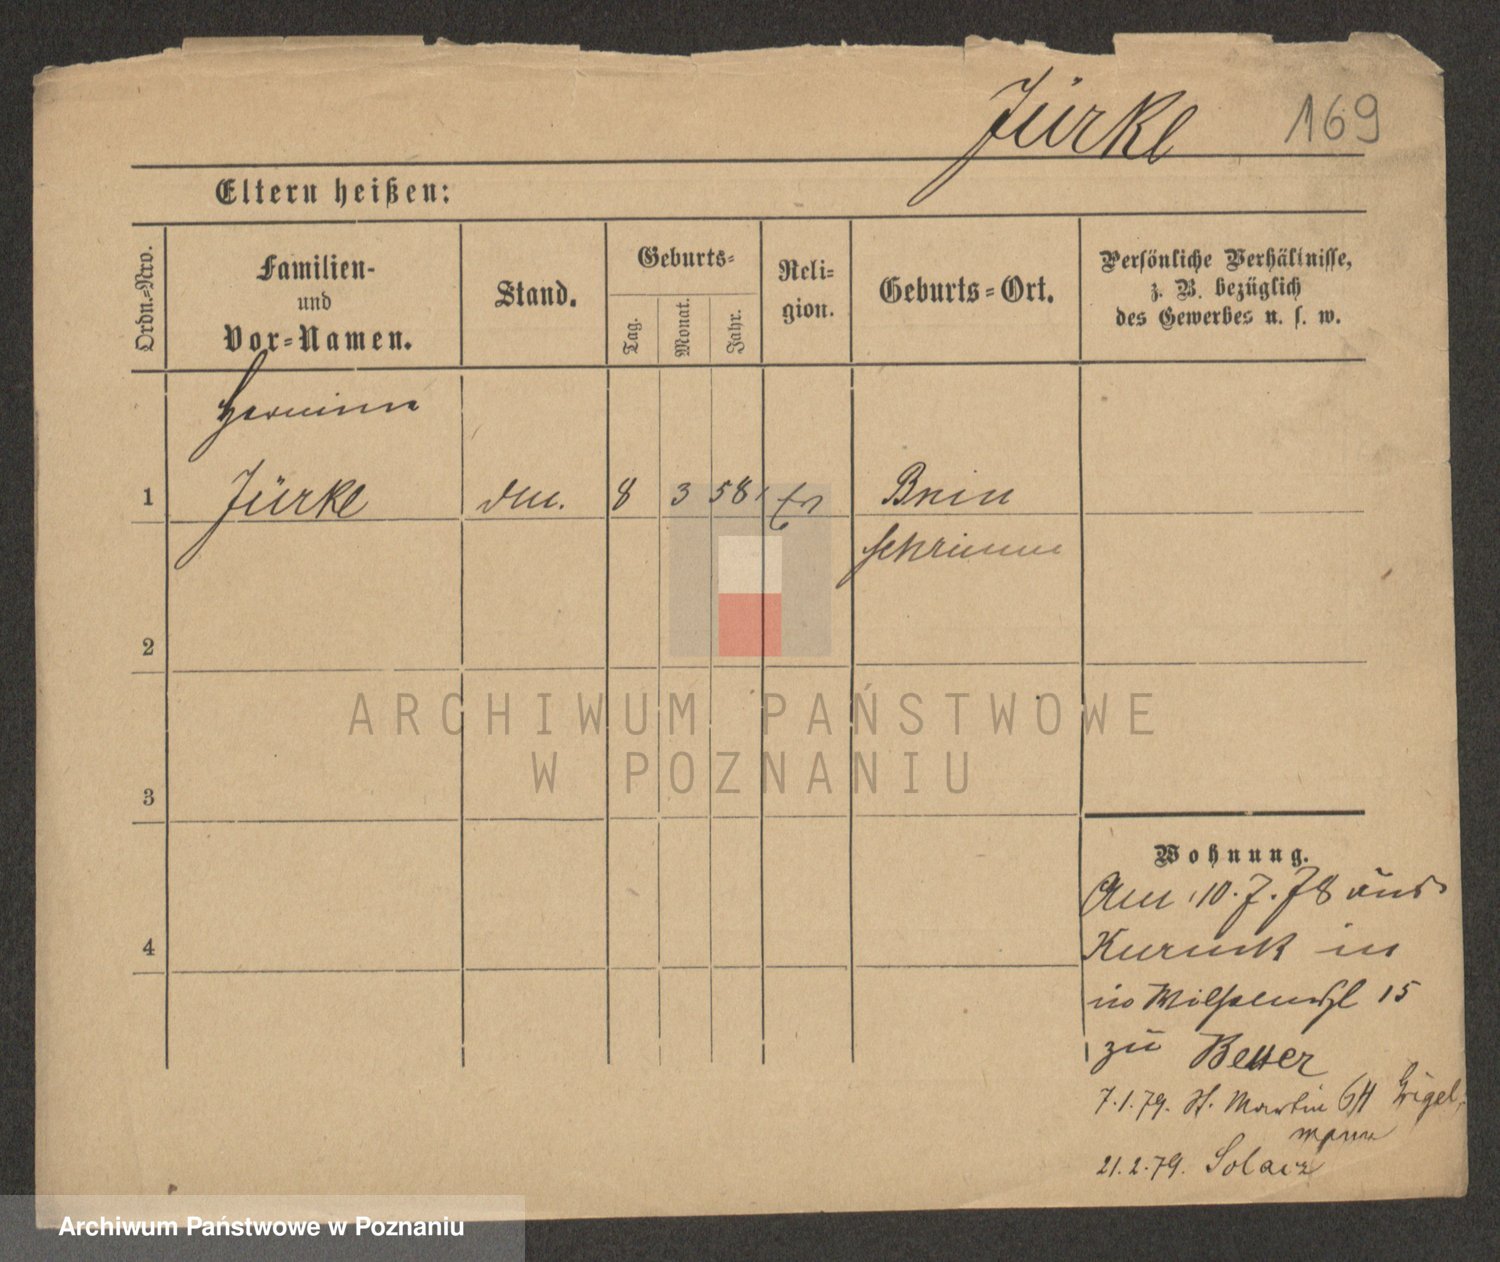 Jürke 169
Eltern heißen:
Ordn.-Nro.
Familien-
und
Vor-Namen.
Stand.
Geburts-
Tag.
Monat.
Jahr.
Reli-
gion.
Geburts-Ort.
Persönliche Verhältnisse,
z. B. bezüglich
des Gewerbes u. s. w.
1 Jürke 8 3 58 Bnin
Schrimm
2
3
4
Wohnung.
Am 10.7.78 aus
Kurnik in
15
zu
7.1.79. St. Martin
mann
21.2.79. Solacz
ARCHIWUM PAŃSTWOWE
W POZNANIU
Archiwum Państwowe w Poznaniu